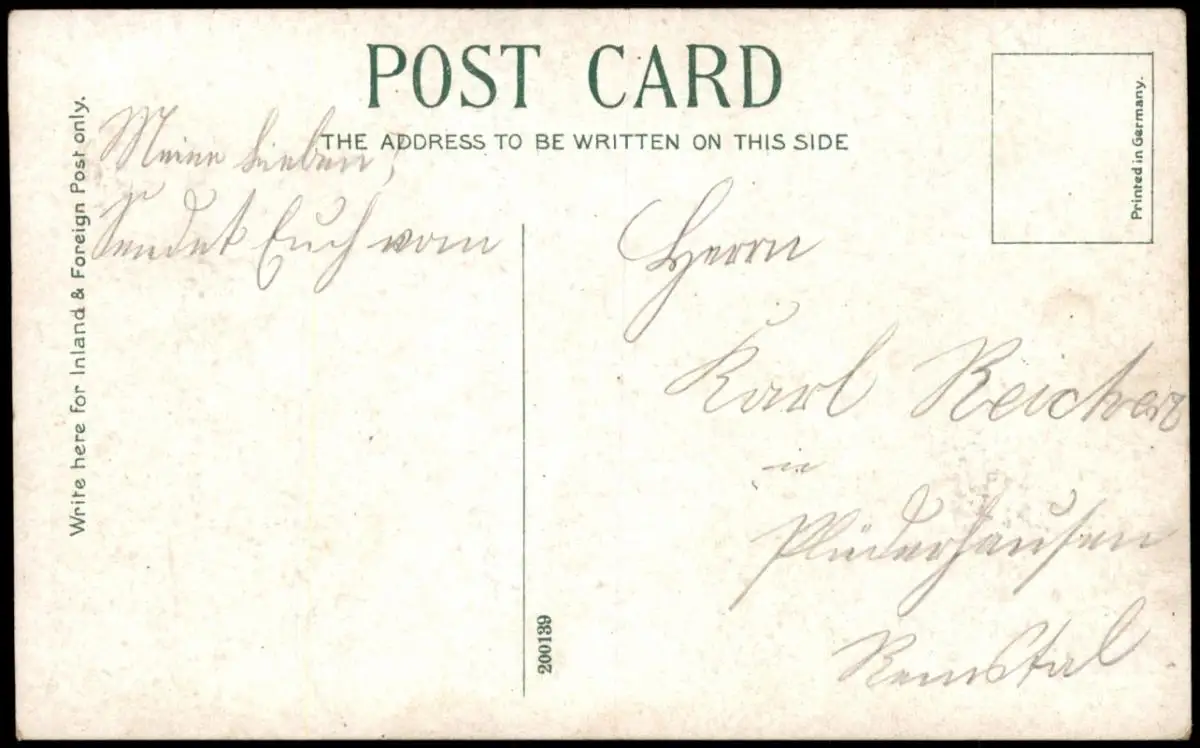 POST CARD
THE ADDRESS TO BE WRITTEN ON THIS SIDE
Write here for Inland & Foreign Post only.
Printed in Germany.
Meine Lieben!
Sendet Euch vom
Herrn
Karl Reichert
in
Plüderhausen
Remstal.
200139